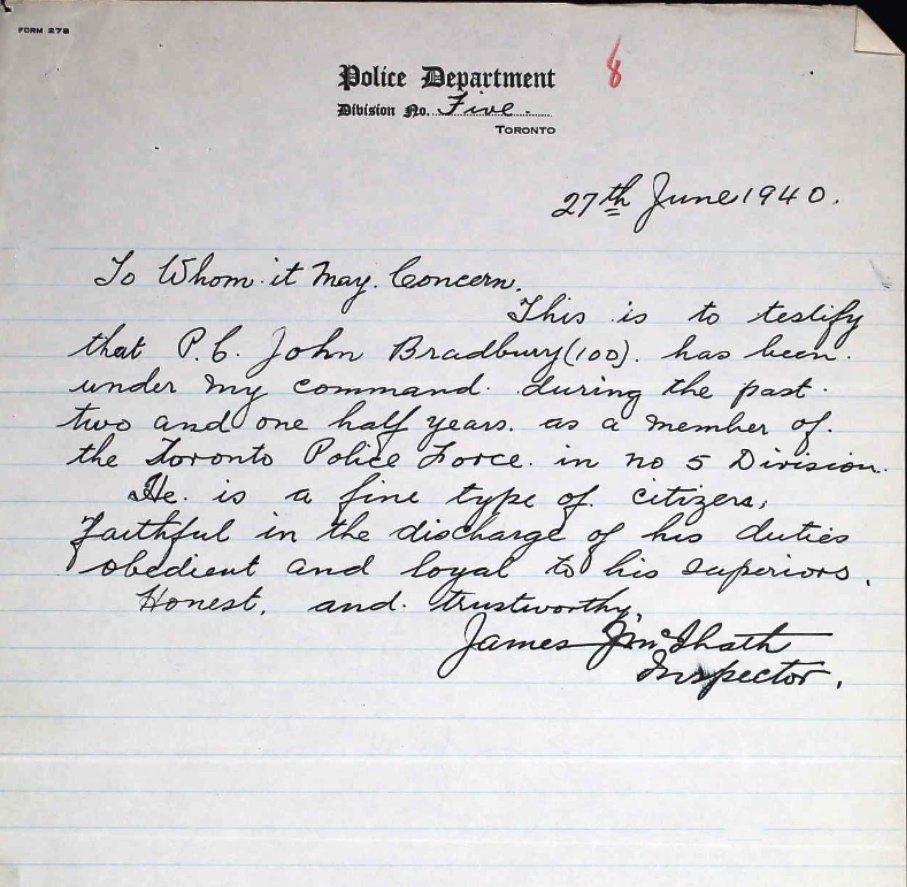 FORM 278
8
Police Department
Division No. Five.
TORONTO
27th June 1940.
To Whom it May. Concern.
This is to testify
that P.C. John Bradbury (100). has been.
under my command. during the past.
two and one half years. as a member of.
the Toronto Police Force. in no 5 Division.
He. is a fine type of. citizens,
faithful in the discharge of his duties
obedient and loyal to his superiors.
Honest, and. trustworthy.
James
Inspector.